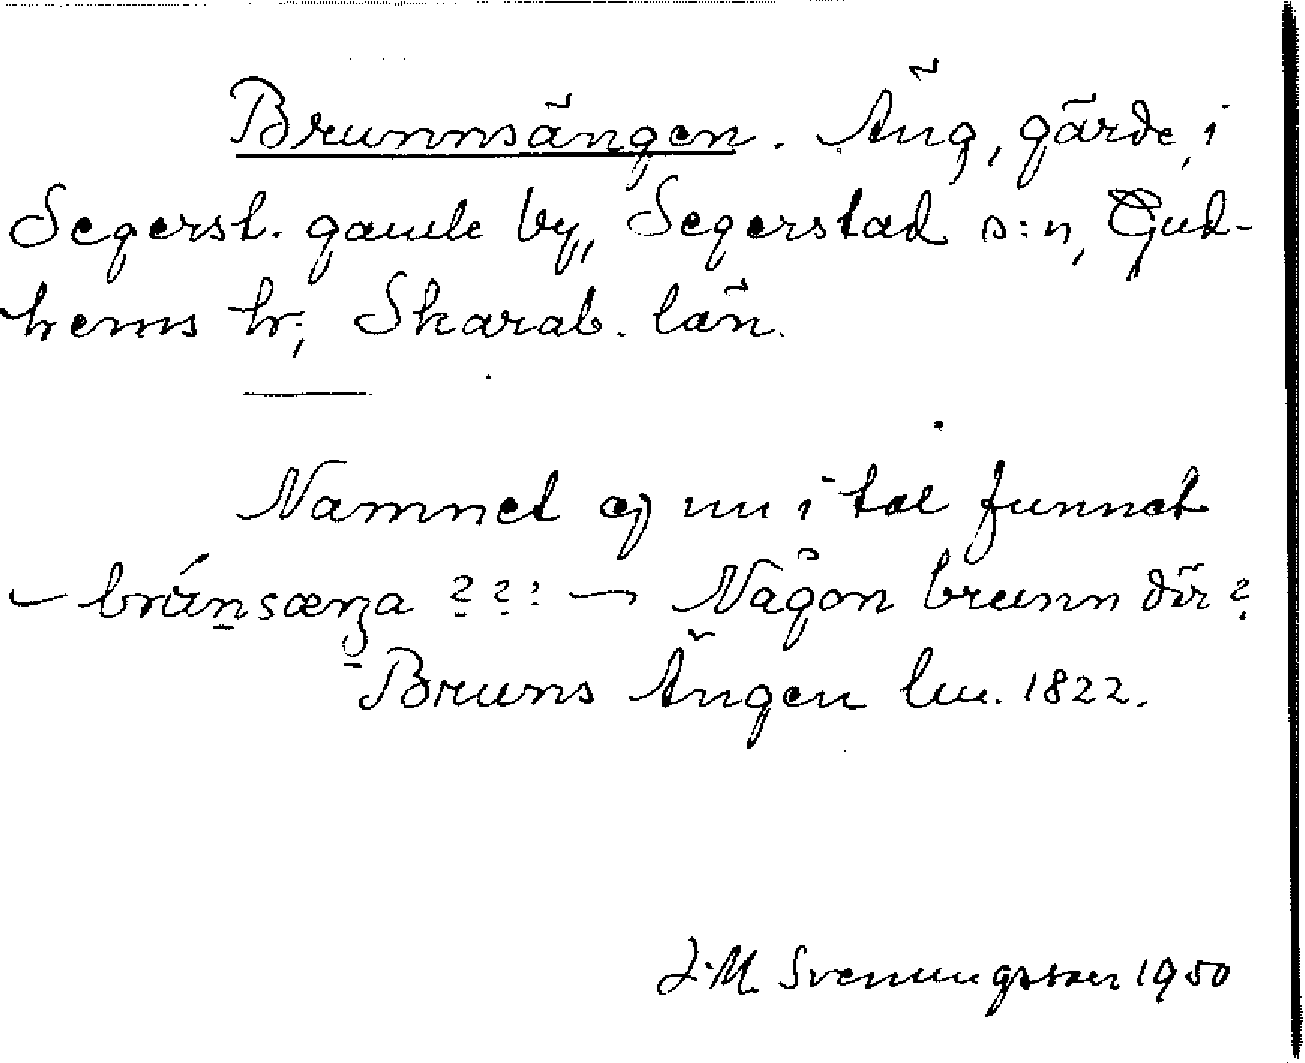 Brunnsängen. Äng, gärde, i
Segerst. gamle by, Segerstad s:n, Gud-
hems hr; Skarab. län.
Namnet ej nu i tal funnet
– brúnsæŋa ??? – Någon brunn där?
Bruns Ängen lm. 1822.
J.M. Svenungsson 1950